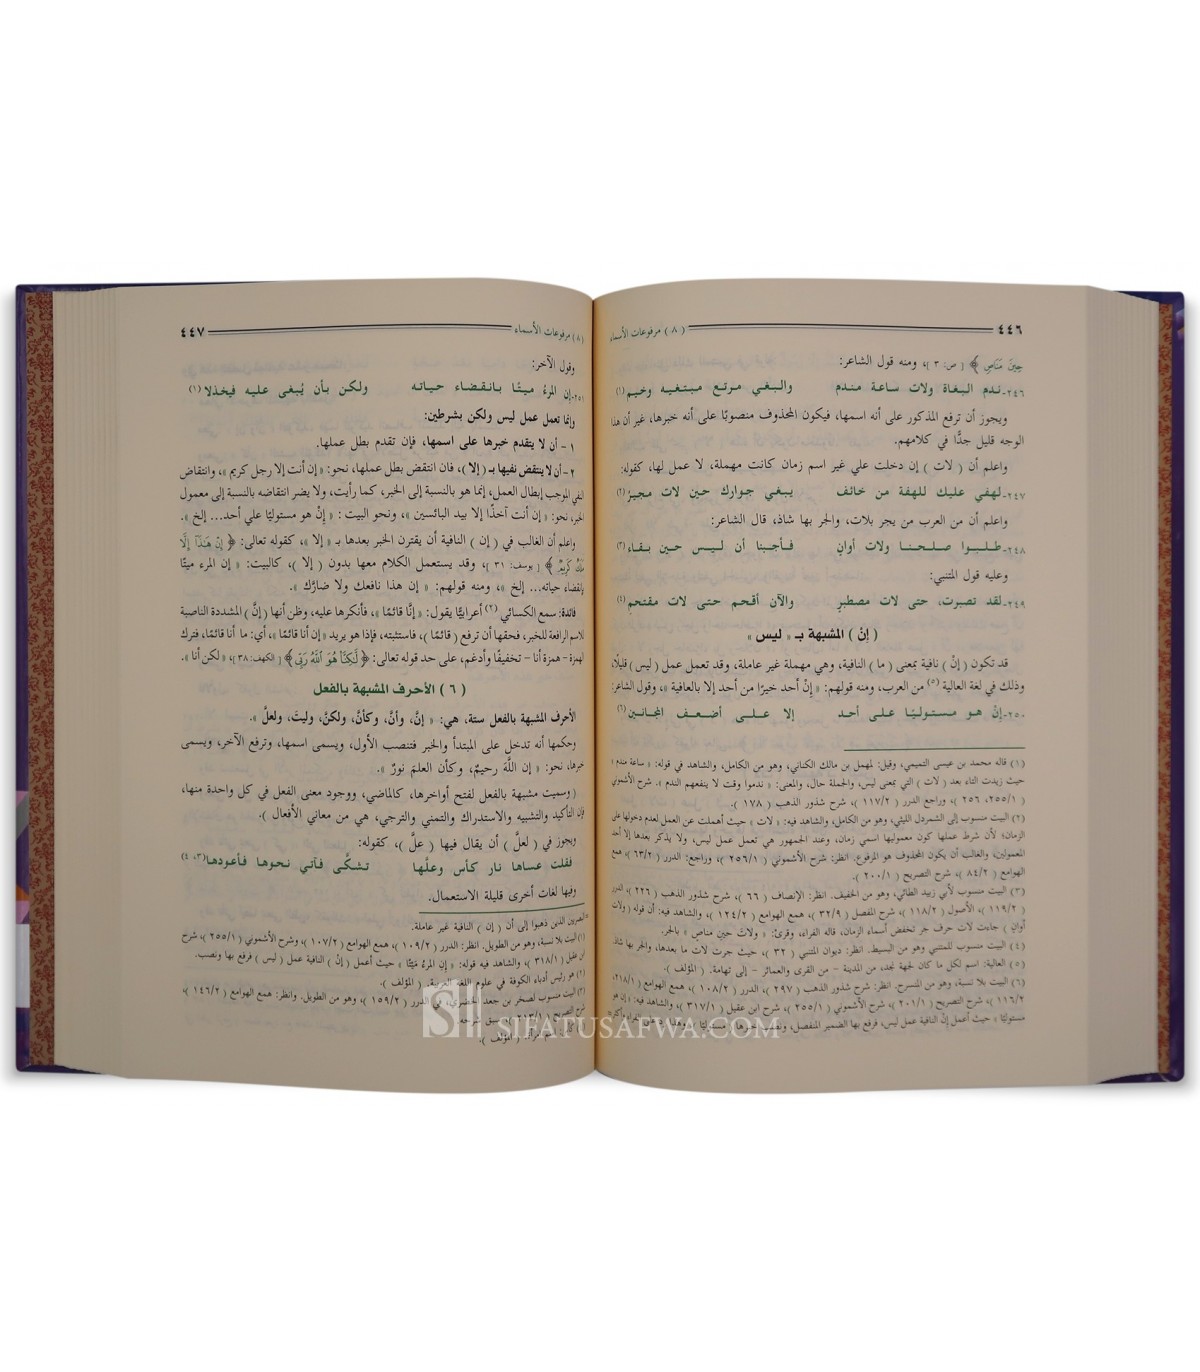 ٤٤٦ ( ٨ ) مرفوعات الأسماء
حِينَ مَنَاصٍ ﴾ [ ص: ٣ ]، ومنه قول الشاعر:
٢٤٦-ندم البغاة ولات ساعة مندم والبغي مرتع مبتغيه وخيم (١)
ويجوز أن ترفع المذكور على أنه اسمها، فيكون المحذوف منصوبًا على أنه خبرها، غير أن هذا
الوجه قليل جدًّا في كلامهم.
واعلم أن ( لات ) إن دخلت علي غير اسم زمان كانت مهملة، لا عمل لها، كقوله:
٢٤٧-لهفي عليك للهفة من خائف يبغي جوارك حين لات مجيرُ (٢)
واعلم أن من العرب من يجر بلات، والجر بها شاذ، قال الشاعر:
٢٤٨-طلبوا صلحنا ولات أوانٍ فأجبنا أن ليس حين بقاء (٣)
وعليه قول المتنبي:
٢٤٩-لقد تصبرت، حتى لات مصطبرِ والآن أقحم حتى لات مقتحمِ (٤)
( إنْ ) المشبهة بـ « ليس »
قد تكون ( إنْ ) نافية بمعنى ( ما ) النافية، وهي مهملة غير عاملة، وقد تعمل عمل ( ليس ) قليلًا،
وذلك في لغة العالية (٥) من العرب، ومنه قولهم: « إنْ أحد خيرًا من أحد إلا بالعافية »، وقول الشاعر:
٢٥٠-إنْ هو مستوليًا على أحد إلا على أضعف المجانين (٦)
(١) قاله محمد بن عيسى التميمي، وقيل: لمهمل بن مالك الكناني، وهو من الكامل، والشاهد في قوله: « ساعة مندم »
حيث زيدت التاء بعد ( لات ) التي بمعنى ليس، والجملة حال، والمعنى: « ندموا وقت لا ينفعهم الندم ». شرح الأشموني
( ٢٥٥/١، ٢٥٦ )، وراجع الدرر ( ١١٧/٢ )، شرح شذور الذهب ( ١٧٨ ).
(٢) البيت منسوب إلى الشمردل الليثي، وهو من الكامل، والشاهد فيه: « لات » حيث أهملت عن العمل لعدم دخولها على
الزمان؛ لأن شرط عملها كون معموليها اسمي زمان، وعند الجمهور هي تعمل عمل ليس، ولا يذكر بعدها إلا أحد
المعمولين، والغالب أن يكون المحذوف هو المرفوع. انظر: شرح الأشموني ( ٢٥٦/١ )، وراجع: الدرر ( ٦٣/٢ )، همع
الهوامع ( ٨٤/٢ )، شرح التصريح ( ٢٠٠/١ ).
(٣) البيت منسوب لأبي زبيد الطائي، وهو من الخفيف. انظر: الإنصاف ( ٦٦ )، شرح شذور الذهب ( ٢٢٦ )، الدرر
( ١١٩/٢ )، الأصول ( ١١٨/٢ )، شرح المفصل ( ٣٢/٩ )، همع الهوامع ( ١٢٤/٢ )، والشاهد فيه: أن قوله ( ولات
أوانٍ ) جاءت لات حرف جر تخفض أسماء الزمان، قاله الفراء، وقرئ: « ولاتَ حينِ مناصٍ » بالجر.
(٤) البيت منسوب للمتنبي وهو من البسيط. انظر: ديوان المتنبي ( ٣٢ )، حيث جرت لات ما بعدها، والجر بها شاذ.
(٥) العالية: اسم لكل ما كان لجهة نجد، من المدينة - من القرى والعمائر - إلى تهامة. ( المؤلف ).
(٦) البيت بلا نسبة، وهو من المنسرح. انظر: شرح شذور الذهب ( ٢٩٧ )، الدرر ( ١٠٨/٢ )، همع الهوامع ( ٢١٨/١،
١١٦/٢ )، شرح التصريح ( ٢٠١/١ )، شرح الأشموني ( ٢٥٥/١ )، شرح ابن عقيل ( ٣١٧/١ )، والشاهد فيه: « إن هو
مستوليًا » حيث أعمل إنْ النافية عمل ليس، فرفع بها الضمير المنفصل،
( ٨ ) مرفوعات الأسماء ٤٤٧
وقول الآخر:
٢٥١-إن المرءُ ميتًا بانقضاء حياته ولكن بأن يُبغى عليه فيخذلا (١)
وإنما تعمل عمل ليس ولكن بشرطين:
١ - أن لا يتقدم خبرها على اسمها، فإن تقدم بطل عملها.
٢ - أن لا ينتقض نفيها بـ ( إلا )، فان انتقض بطل عملها، نحو: « إن أنت إلا رجل كريم »، وانتقاض
النفي الموجب إبطال العمل، إنما هو بالنسبة إلى الخبر، كما رأيت، ولا يضر انتقاضه بالنسبة إلى معمول
الخبر، نحو: « إن أنت آخذًا إلا بيد البائسين »، ونحو البيت : « إنْ هو مستوليًا علي أحد... إلخ ».
واعلم أن الغالب في ( إن ) النافية أن يقترن الخبر بعدها بـ « إلا »، كقوله تعالى: ﴿ إِنْ هَـٰذَآ إِلَّا
مَلَكٌ كَرِيمٌ ﴾ [ يوسف: ٣١ ]، وقد يستعمل الكلام معها بدون ( إلا )، كالبيت: « إن المرء ميتًا
بانقضاء حياته... إلخ »، ومنه قولهم: « إن هذا نافعك ولا ضارَّك ».
فائدة: سمع الكسائي (٢) أعرابيًّا يقول: « إنَّا قائمًا »، فأنكرها عليه، وظن أنها ( إنَّ ) المشددة الناصبة
للاسم الرافعة للخبر، فحقها أن ترفع ( قائمًا )، فاستثبته، فإذا هو يريد « إن أنا قائمًا »، أي: ما أنا قائمًا، فترك
الهمزة - همزة أنا - تخفيفًا وأدغم، على حد قوله تعالى: ﴿ لَّـٰكِنَّا۠ هُوَ ٱللَّهُ رَبِّى ﴾ [ الكهف: ٣٨ ]، « لكن أنا ».
( ٦ ) الأحرف المشبهة بالفعل
الأحرف المشبهة بالفعل ستة، هي: « إنَّ، وأنَّ، وكأنَّ، ولكنَّ، وليتَ، ولعلَّ ».
وحكمها أنه تدخل على المبتدأ والخبر فتنصب الأول، ويسمى اسمها، وترفع الآخر، ويسمى
خبرها، نحو: « إن اللَّهَ رحيمٌ، وكأن العلمَ نورٌ ».
( وسميت مشبهة بالفعل لفتح أواخرها، كالماضي، ووجود معنى الفعل في كل واحدة منها،
فإن التأكيد والتشبيه والاستدراك والتمني والترجي، هي من معاني الأفعال ).
ويجوز في ( لعلَّ ) أن يقال فيها ( علَّ )، كقوله:
فقلت عساها نار كأس وعلَّها تشكَّى فآتي نحوها فأعودها (٣، ٤)
وفيها لغات أخرى قليلة الاستعمال.
البصريين الذين ذهبوا إلى أن ( إن ) النافية غير عاملة.
(١) البيت بلا نسبة، وهو من الطويل. انظر: الدرر ( ١٠٩/٢ )، همع الهوامع ( ١٠٧/٢ )، وشرح الأشموني ( ٢٥٥/١ )، شرح
ابن عقيل ( ٣١٨/١ )، والشاهد فيه قوله: « إن المرءُ مَيْتًا » حيث أعمل ( إنْ ) النافية عمل ( ليس ) فرفع بها ونصب.
(٢) هو رئيس أدباء الكوفة في علوم اللغة العربية. ( المؤلف ).
(٣) البيت منسوب لصخر بن جعد الخضري، في الدرر ( ١٥٩/٢ )، وهو من الطويل. وانظر: همع الهوامع ( ١٤٦/٢ )،
شرح التصريح ( ٢١٣/١ )، سبق شرحه.
( المؤلف ).
SIFATUSAFWA.COM